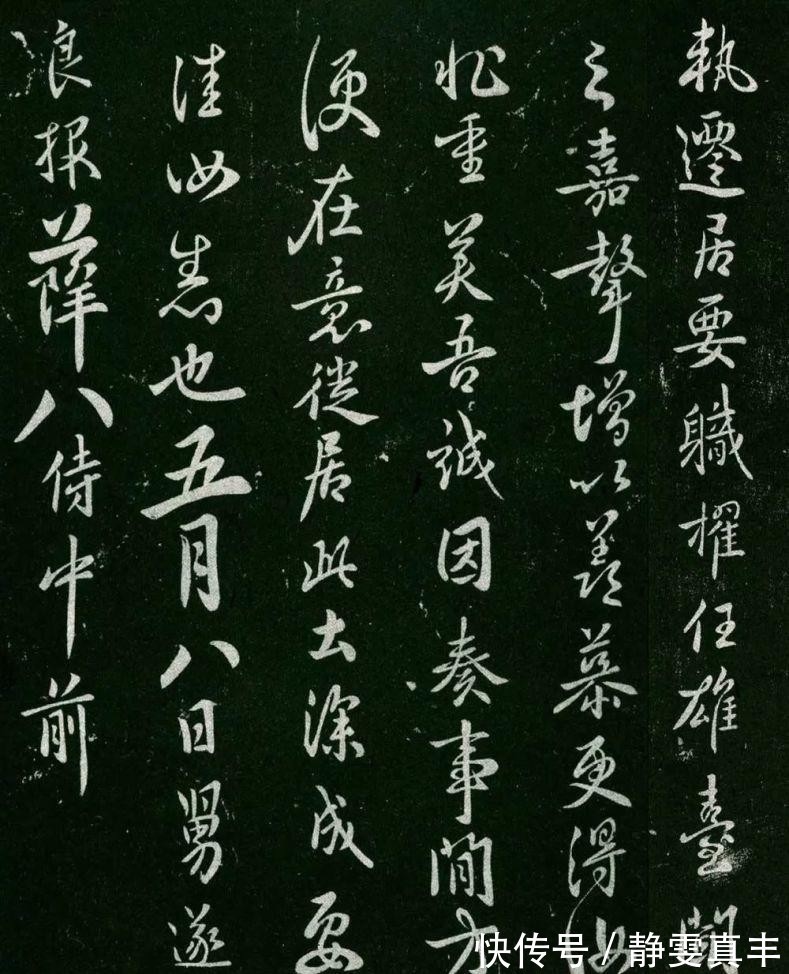 執遷居要職擢任雄臺
之嘉聲增以羨慕更得汝
非重美吾誠因奏事簡方
便在意從居此土深成要
佳汝悉也五月八日舅遂
良報薛八侍中前
快传号/静雯真丰